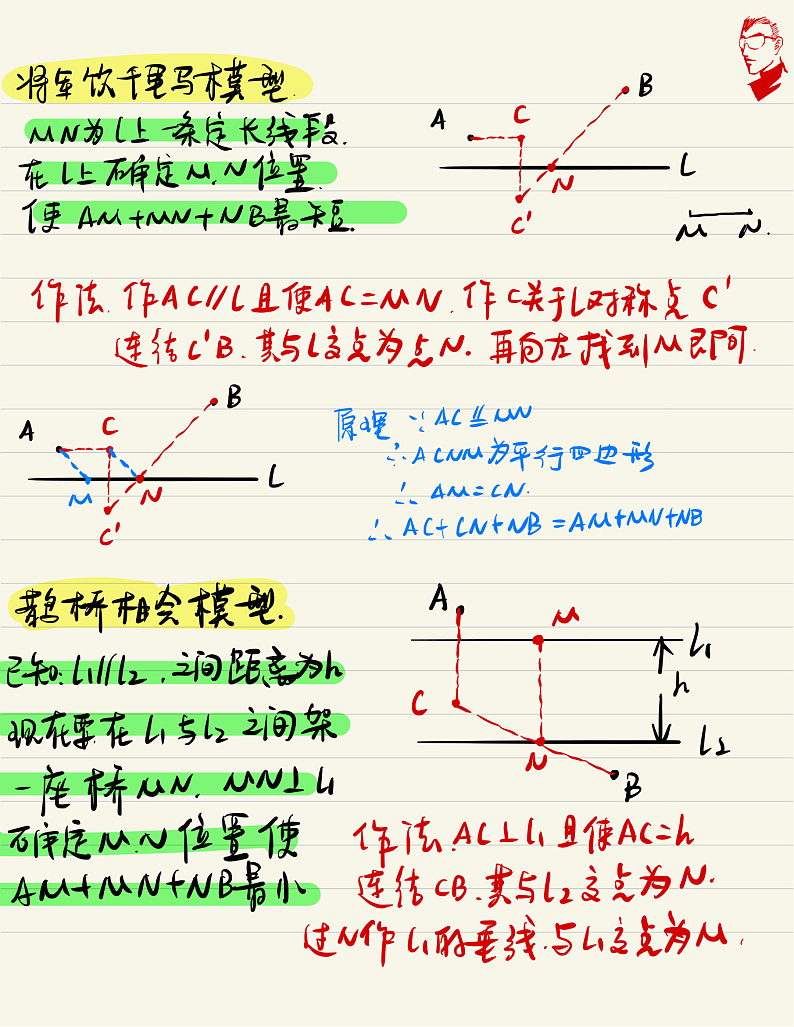 将军饮千里马模型.
MN为l上一条定长线段.
在l上确定M.N位置.
使 AM+MN+NB最短.
A
C
B
N
L
C'
M N.
作法.作AC//L且使AC=MN.作C关于L对称点 C'
连结C'B.其与L交点为点N.再向左找到M即可.
A
C
B
M
N
L
C'
原理 ∵AC⫽MN
∴ACNM为平行四边形
∴ AM=CN.
∴AC+CN+NB=AM+MN+NB
鹊桥相会模型.
已知:L1//L2,之间距离为h
现在要在L1与L2之间架
一座桥MN.MN⊥L1
确定M.N位置使
AM+MN+NB最小
A
M
L1
h
C
N
L2
B
作法.AC⊥L1且使AC=h
连结CB.其与L2交点为N.
过N作L1的垂线.与L1交点为M.